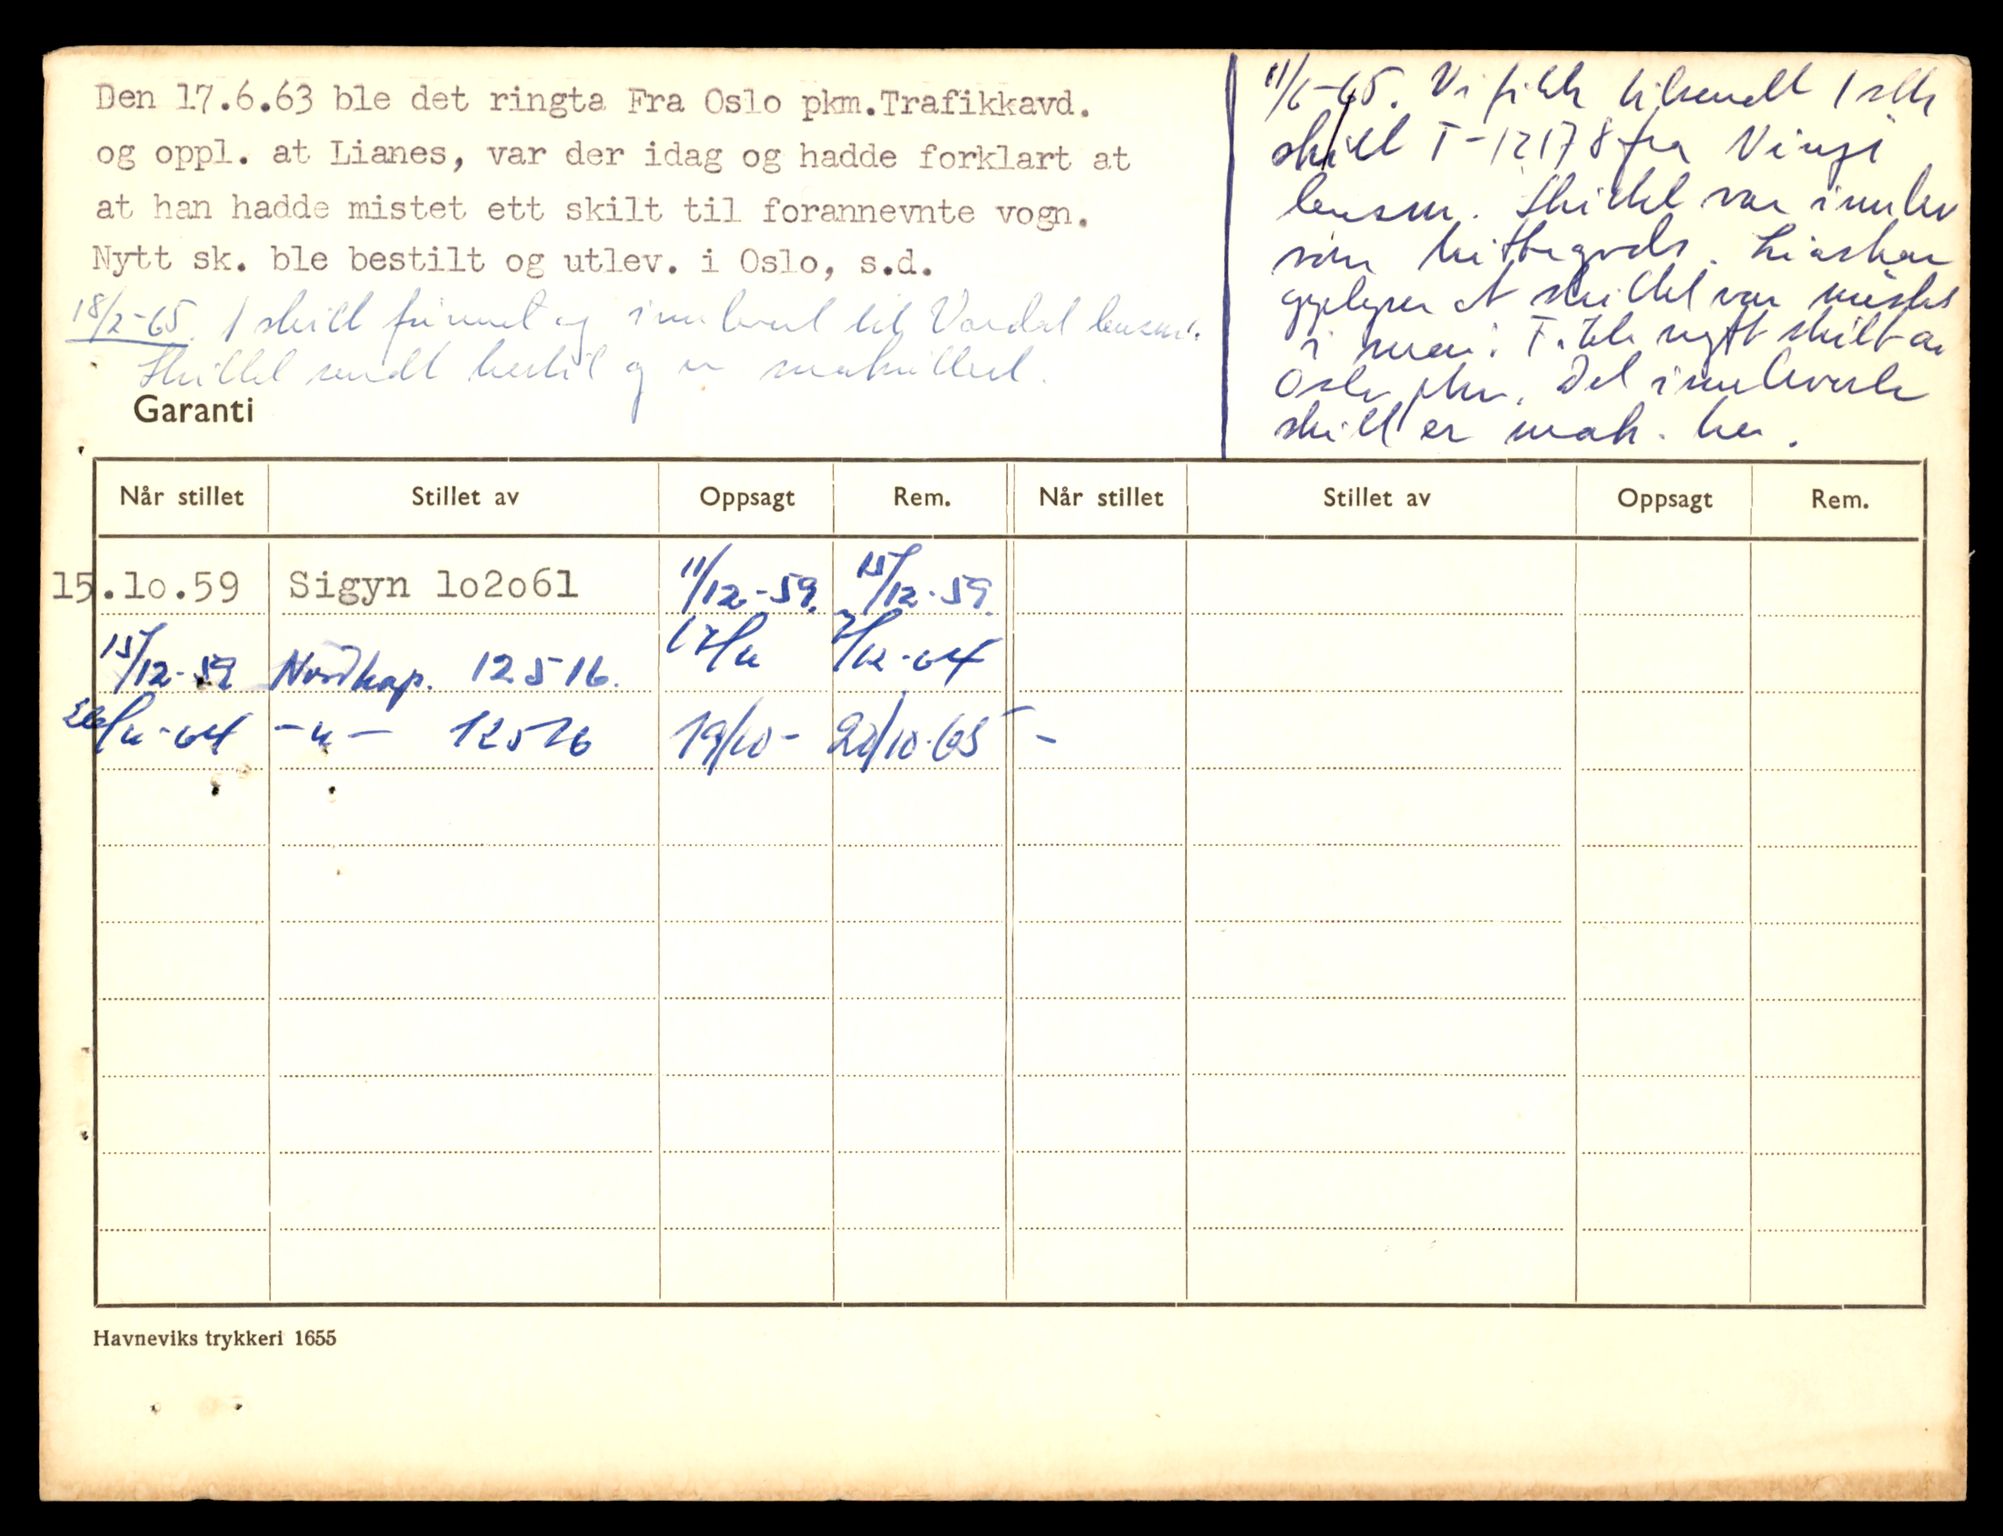 Den 17.6.63 ble det ringta Fra Oslo pkm.Trafikkavd.
og oppl. at Lianes, var der idag og hadde forklart at
at han hadde mistet ett skilt til forannevnte vogn.
Nytt sk. ble bestilt og utlev. i Oslo, s.d.
18/2-65. 1 skilt funnet og innlevert til Vardal lensm.
Skiltet sendt hertil og er makullert.
11/6-65. Vi fikk tilsendt 1 stk
skilt T-12178 fra Vingé
lensm. Skiltet var innlev
som hittegods.
opplyser at skiltet var mistet
i mai. nytt skilt av
Oslo pkm. Det innleverte
skilt er mak. her.
Garanti
Når stillet Stillet av Oppsagt Rem. Når stillet Stillet av Oppsagt Rem.
15.1o.59 Sigyn 1o2o61 11/12-59. 15/12-59.
15/12-59 Nordkap. 12516. 17/11 2/12-64
26/11-64 -"- 12516 19/10- 20/10-65 -
Havneviks trykkeri 1655